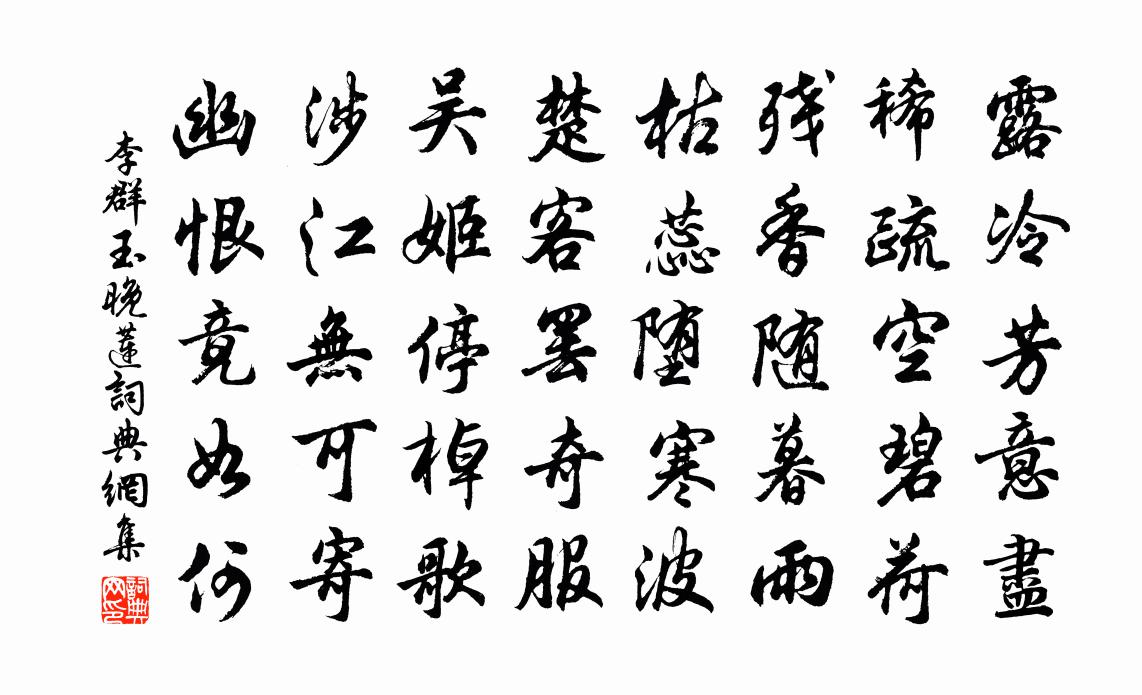 露冷芳意盡
稀疏空碧荷
残香随暮雨
枯蕊堕寒波
楚客罢奇服
吴姬停棹歌
涉江無可寄
幽恨竟如何
李群玉晚蓮詞典網集
詞典网印